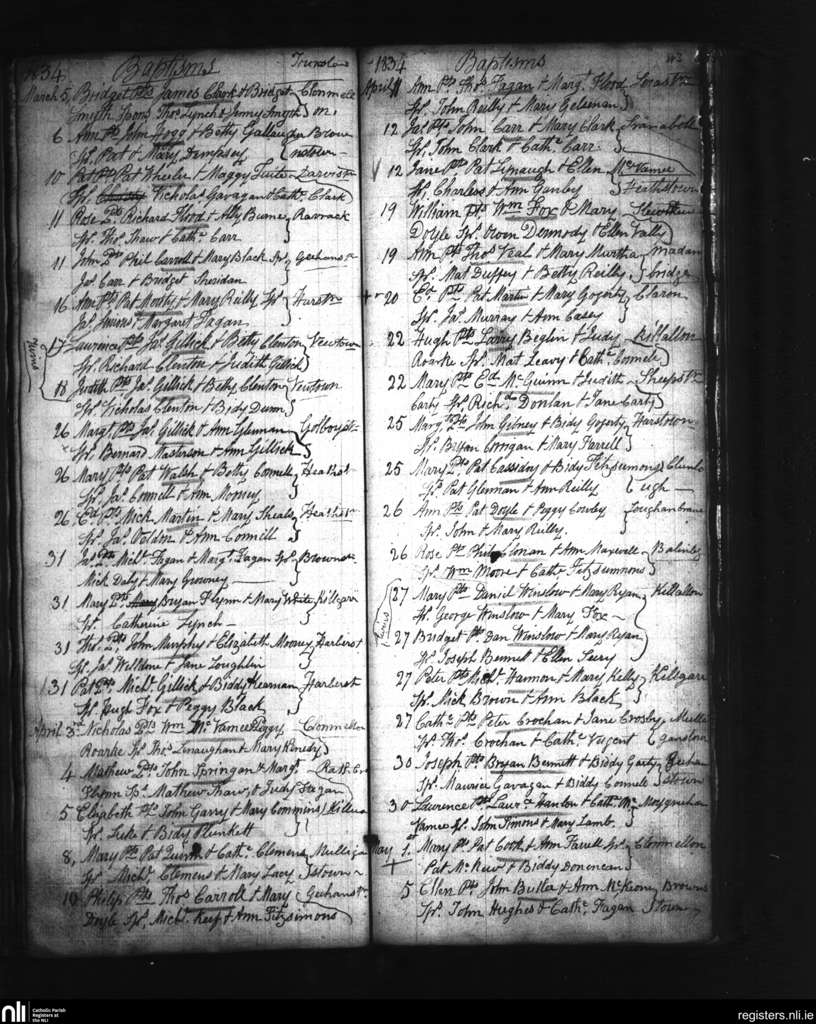 1834 Baptisms Townland
March 5, Bridget Pts James Clark & Bridget Clonmell
Smyth Spons Thos Lynch & Jenny Smyth on.
6 Ann Pts John Fogg & Betty Gallaugher Brow
Sp. Pat & Mary Dempsey nstown
10 Pat Pts Pat Wheeler & Maggy Tuite
Sp. Nicholas Gavagan & Cathe Clark
11 Rose Pts Richard Flood & Ally Burney
Sp. Thos Shaw & Cathe Carr
11 John Pts Phil Carroll & Mary Black Sp. Geehans
Jas. Carr & Bridget Sheridan
16 Ann Pts Pat & Mary Reilly Sp.
Jas. & Margaret Fagan
Twins
17 Laurence Pts Jas. Gillick & Betty Clenton Newtown
Sp. Richard Clenton & Judith Gillick
18 Judith Pts Jas. Gillick & Betty Clenton Newtown
Sp. Nicholas Clenton & Bidy Dunn
26 Margt. Pts Jas. Gillick & Ann Glennan
Sp. Bernard Masterson & Ann Gillick
26 Mary Pts Pat Walsh & Betty Connell Heathst
Sp. Jas. Connell & Ann Mooney
26 Ed. Pts Mick Martin & Mary Sheals Heathst
Sp. Jas. & Ann Connell
31 Jas. Pts Michl. Fagan & Margt. Fagan Sp. Brownst
Mick Daly & Mary Growney
31 Mary Pts Bryan Flynn & Mary White Killgar
Sp. Catherine Lynch
31 Thos. Pts John Murphy & Elizabeth Mooney Harberst
Sp. Jas. Weldone & Jane Loughlin
31 Pat Pts Michl. Gillick & Biddy Keernan Harberst
Sp. Hugh Fox & Peggy Black
April 3rd Nicholas Pts Wm Mc Vamee & Peggy Clonmellon
Roarke Sp. Thos Lenaughan & Mary Kenedy
4 Mathew Pts John Springan & Margt.
Flynn Sp. Mathew Shaw & Judy Fegan
5 Elizabeth Pts John Garry & Mary Commins
Sp. Luke & Bidy Plunkett
8, Mary Pts Pat Quinn & Cathe. Clemens Mulliga
Sp. Michl. Clemens & Mary Lavy stown
10 Philip Pts Thos Carroll & Mary Geehans
Doyle Sp. Michl. Keef & Ann Fitzsimons
1834 Baptisms
April 11 Ann Pts Thos. Fagan & Margt. Flood
Sp. John Reilly & Mary
12 Jas. Pts John Carr & Mary Clark
Sp. John Clark & Cathe. Carr
12 Jane Pts Pat Lynaugh & Ellen McVamee
Sp. Charles & Ann Ganley Heathstown
19 William Pts Wm Fox & Mary
Doyle Sp. Owen Dermody & Ellen Lally
19 Ann Pts Thos Veal & Mary Murtha Madan
Sp. Mat Duffey & Betty Reilly bridge
20 Ed. Pts Pat Martin & Mary Gogorty
Sp. Jas. Murray & Ann Casey
22 Hugh Pts Larry Beglin & Judy Killallon
Roarke Sp. Mat Leavy & Cathe. Connell
22 Mary Pts Ed. McGuinn & Judith
Carty Sp. Richd. Donlan & Jane Carty
25 Margt. Pts John Gibney & Bidy Gogorty Harstown
Sp. Bryan Corrigan & Mary Farrell
25 Mary Pts Pat Cassidy & Bidy Fitzsimons
Sp. Pat Glennan & Ann Reilly
26 Ann Pts Pat Doyle & Peggy Cowley
Sp. John & Mary Reilly.
26 Rose Pts Philip Clonan & Ann Maxwell
Sp. Wm Moore & Cathe Fitzsimmons
Twins
27 Mary Pts Daniel Winslow & Mary Ryan Killallon
Sp. George Winslow & Mary Fox
27 Bridget Pts Dan Winslow & Mary Ryan
Sp. Joseph Bennet & Ellen
27 Peter Pts Michl. Hannon & Mary Kelly Killgar
Sp. Mick Brown & Ann Black
27 Cathe Pts Peter Crochan & Jane Crosby, Mulli
Sp. Thos. Crochan & Cathe. Nugent ganstown
30 Joseph Pts Bryan Bennett & Biddy Garty Geehan
Sp. Maurice Gavagan & Biddy Connell stown
30 Laurence Pts Laurce Hanlon & Cathe Mc
Vamee Sp. John Timons & Mary Lamb.
May 1st Mary Pts Pat & Ann Farrell Sp. Clonmellon
Pat & Biddy Donencan
5 Ellen Pts John Butler & Ann McKeon Browns
Sp. John Hughes & Cathe. Fagan town
nli Catholic Parish
Registers at
the NLI
registers.nli.ie